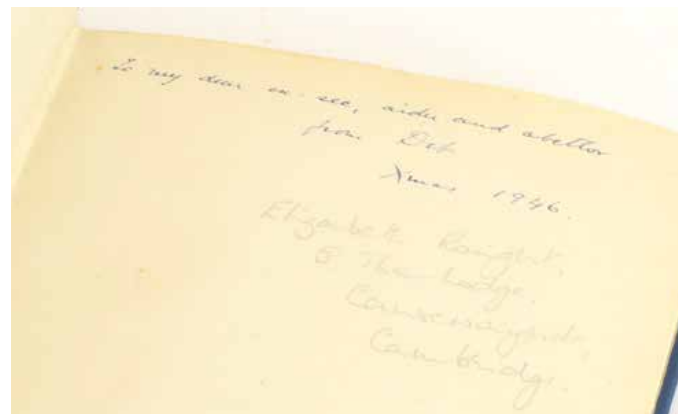 To my dear ex-sec, aider and abettor
from Dick
Xmas 1946.
Elizabeth Knight,
The Lodge,
Cambridge.